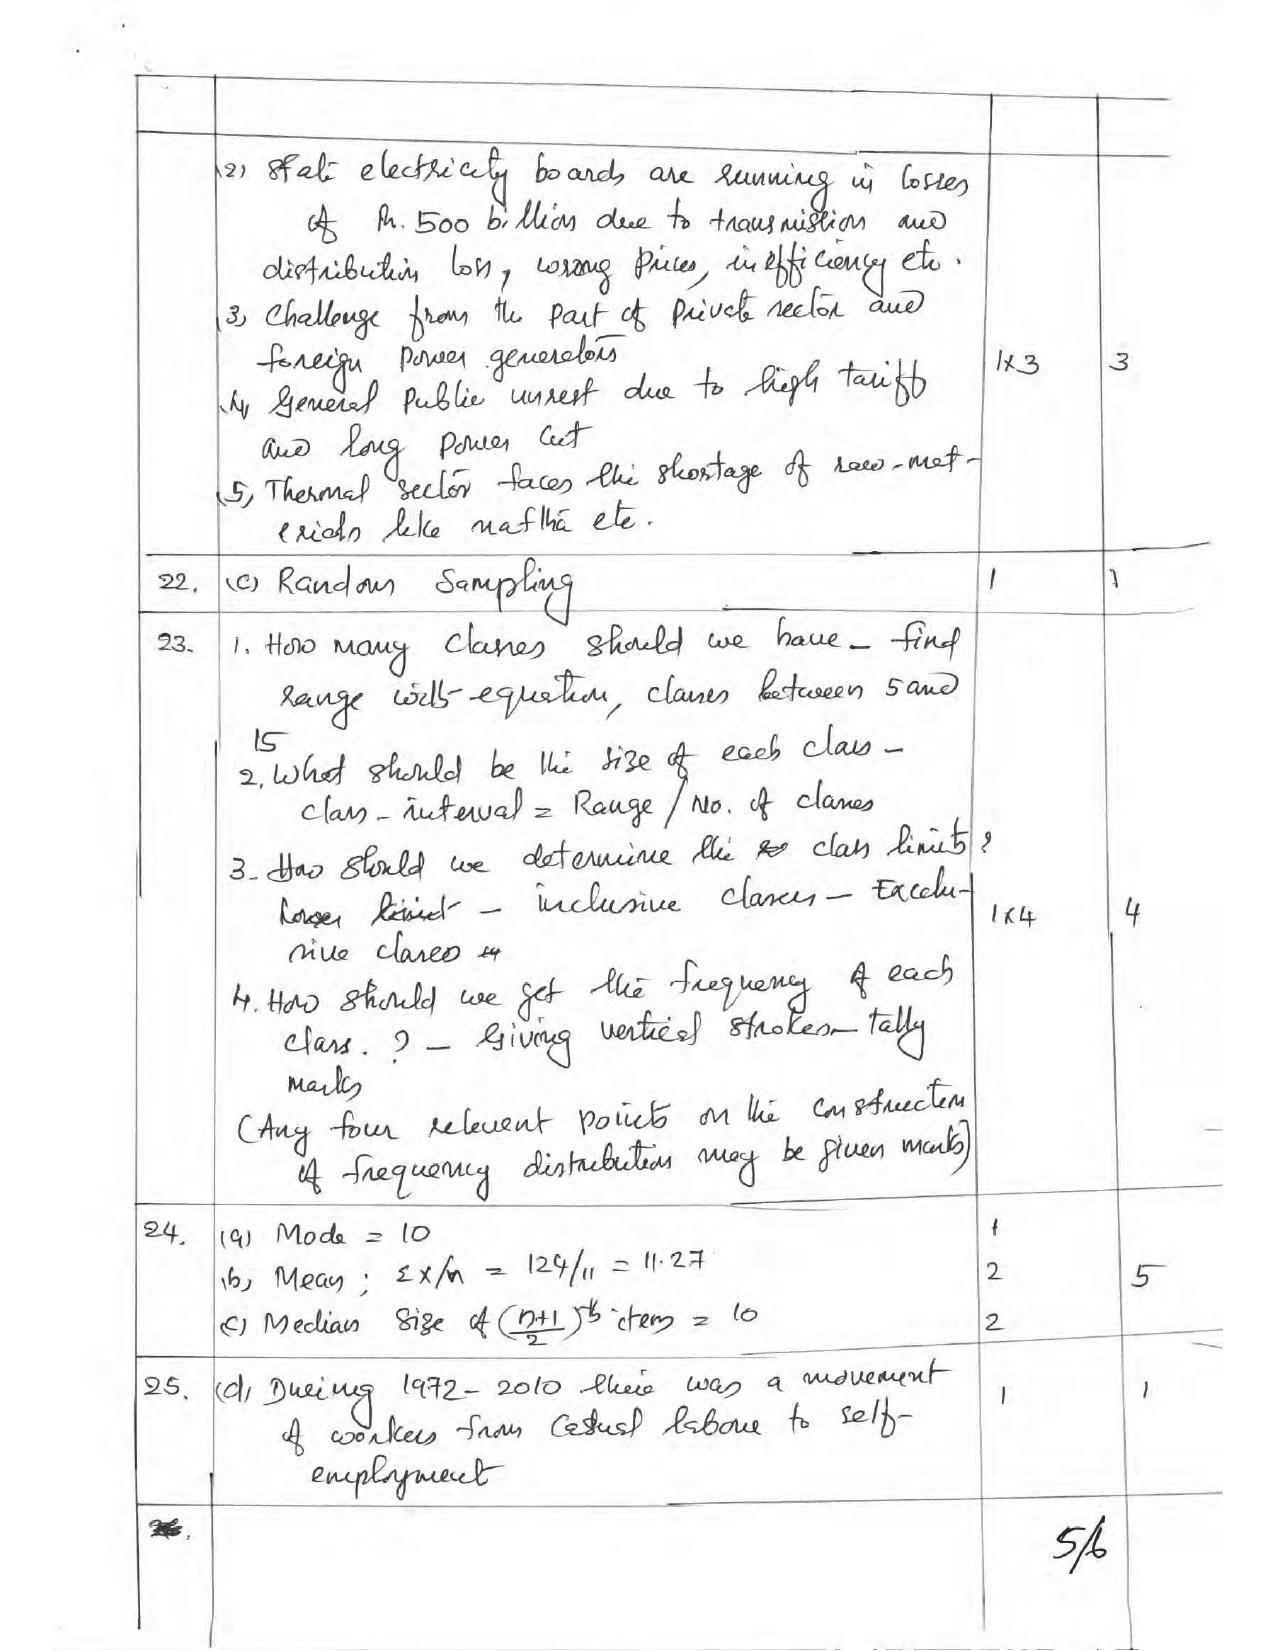 2) State electricity boards are running in losses
of Rs. 500 billion due to transmission and
distribution loss, wrong prices, inefficiency etc.
3) Challenge from the part of private sector and
foreign power generators
1x3 3
4) General public unrest due to high tariff
and long power cut
5) Thermal sector faces the shortage of raw-mat-
erials like naftha etc.
22. (c) Random Sampling 1 1
23. 1. How many classes should we have - find
range with equation, classes between 5 and
15
2. What should be the size of each class -
class - interval = Range / No. of classes
3. How should we determine the class limits?
lower limit - inclusive classes - Exclu-
sive classes
1x4 4
4. How should we get the frequency of each
class. ? - Giving vertical strokes - tally
marks
(Any four relevent points on the construction
of frequency distribution may be given marks)
24. (a) Mode = 10 1
(b) Mean ; Σx/n = 124/11 = 11.27 2 5
(c) Median Size of (n+1/2)th item = 10 2
25. (d) During 1972 - 2010 there was a movement 1 1
of workers from casual labour to self-
employment
5/6